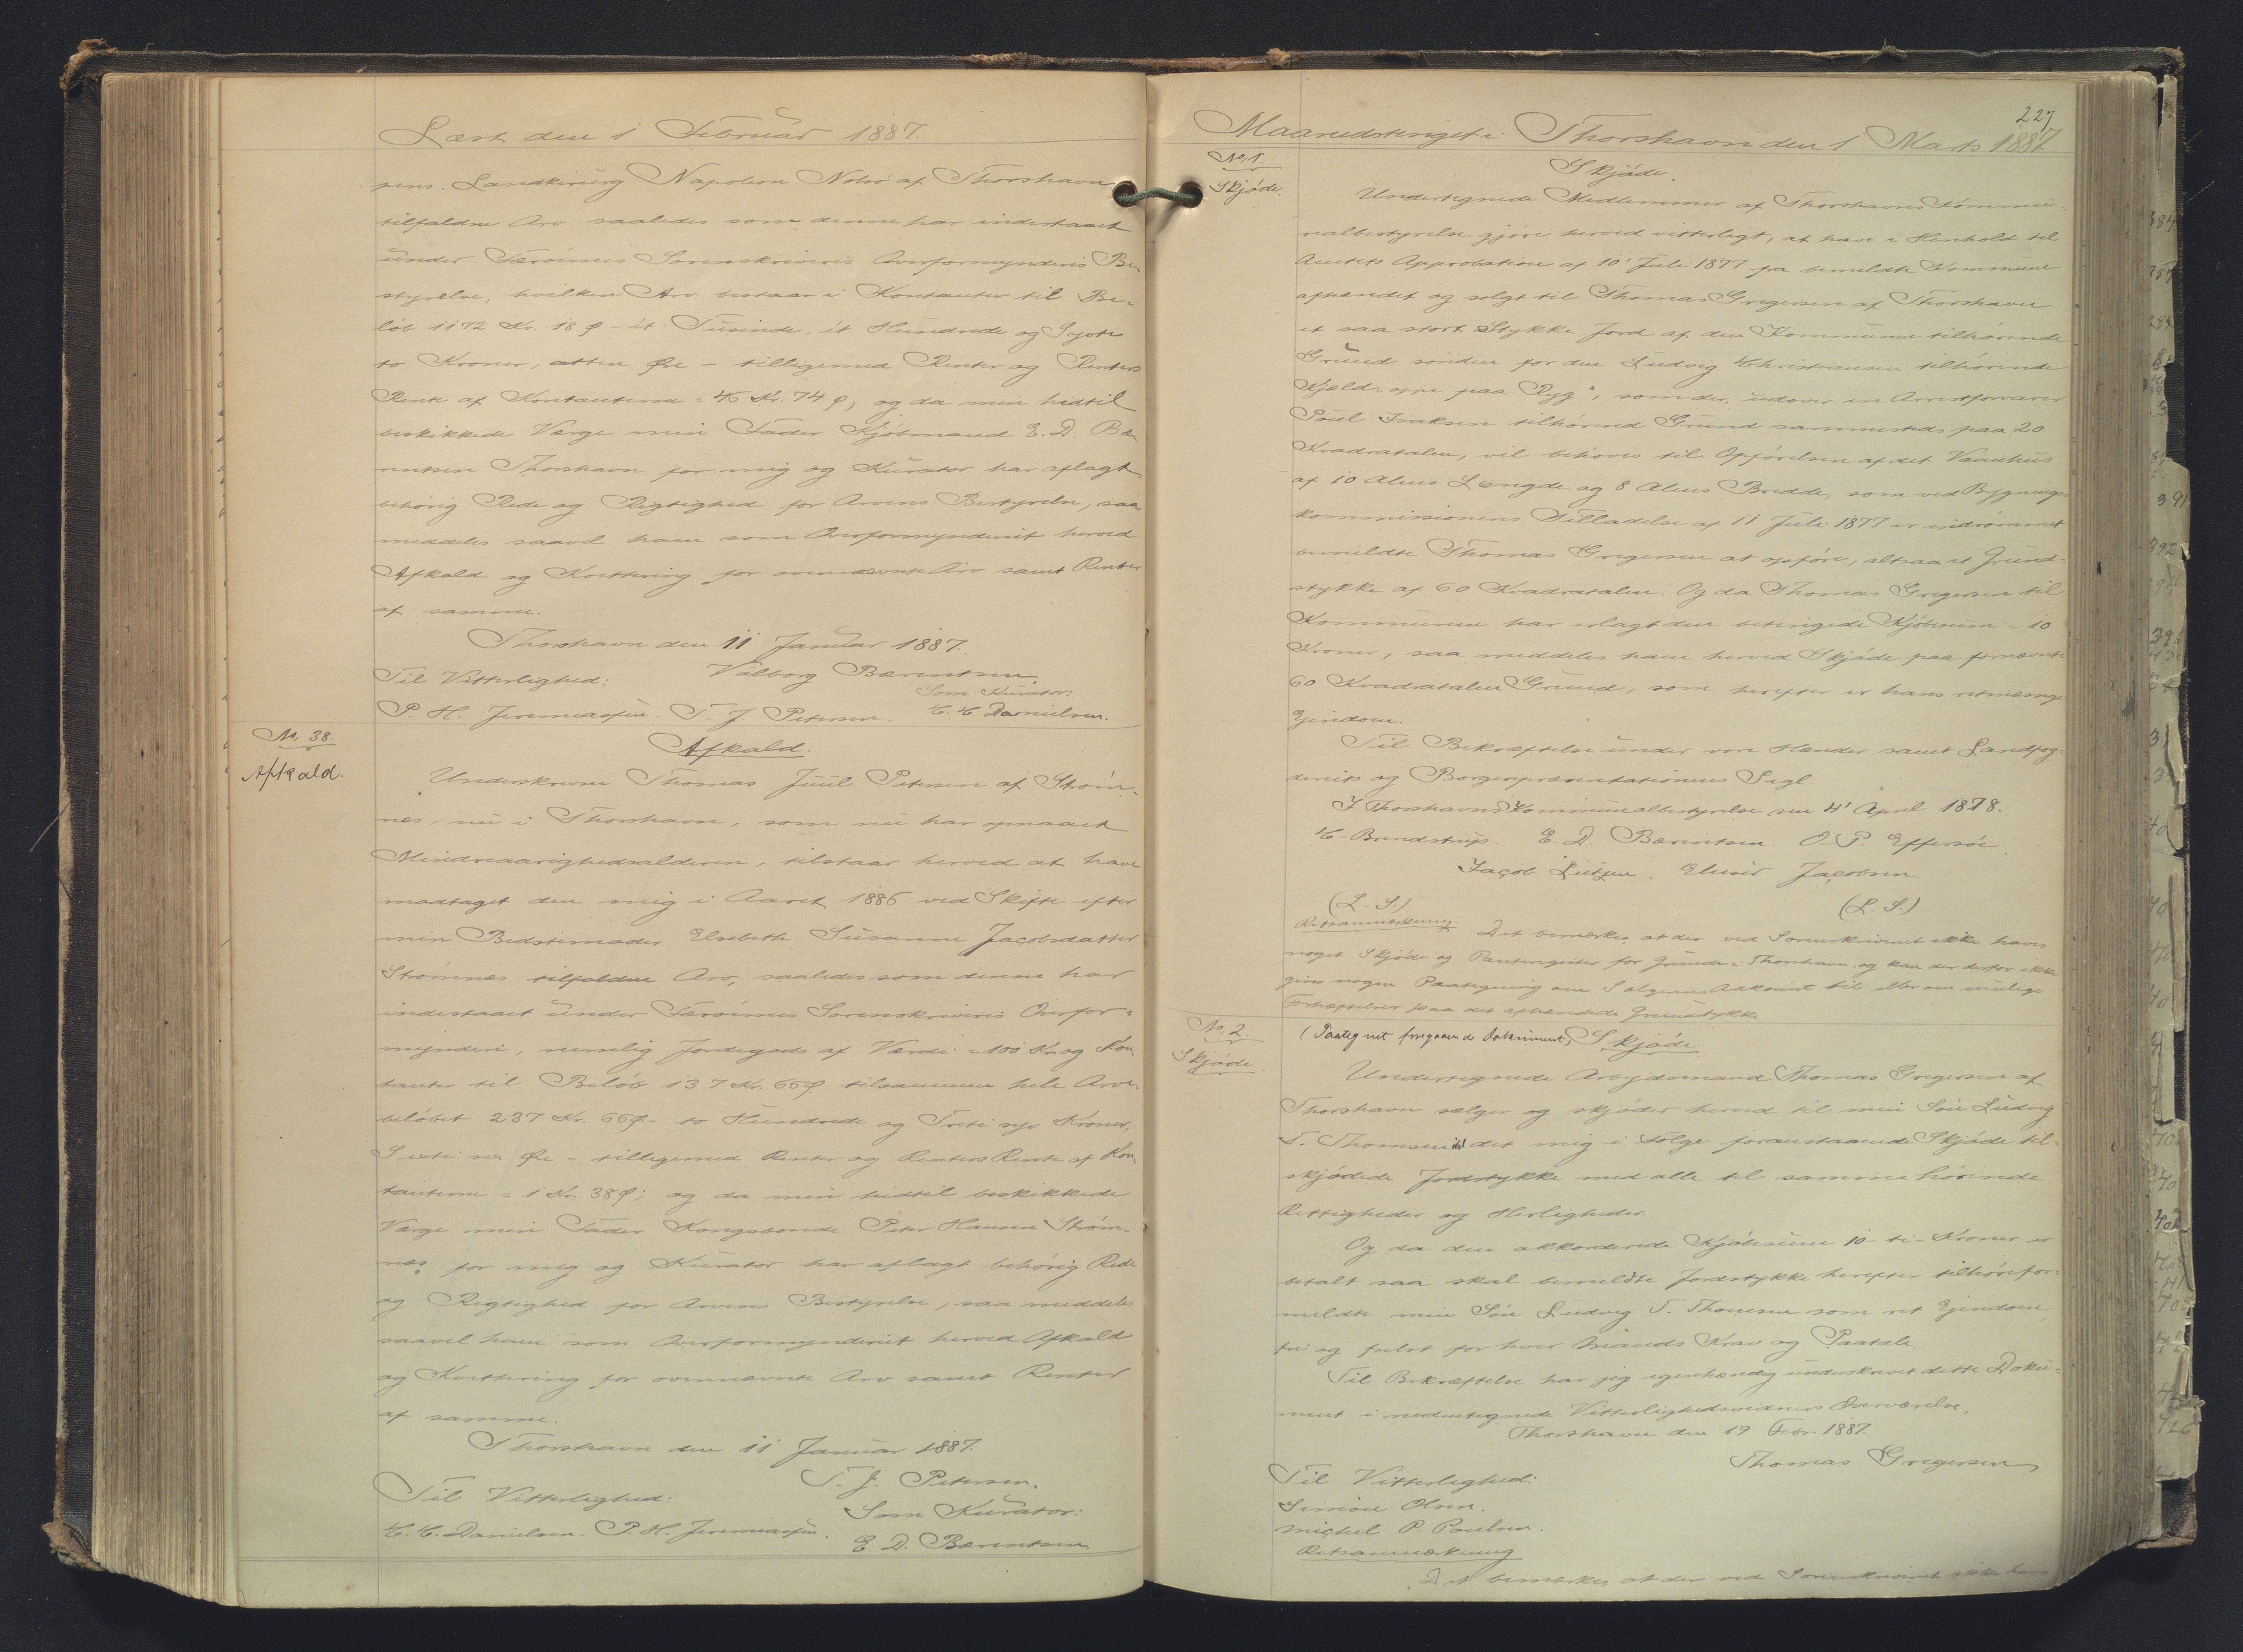 Læst den 1 Februar 1887.
pens. Landkirurg Napoleon Nolsø af Thorshavn
tilfaldne Arv saaledes som denne har indestaaet
under Færøernes Sorenskriveris Overformynderis Be-
styrelse, hvilken Arv bestaar i Kontanter til Be-
løb 1172 Kr. 18 Ø - ét Tusinde, ét Hundrede og Sytti
to Kroner, atten Øre - tilligemed Renter og Renters
Rente af Kontanterne = 46 Kr. 74 Ø; og da min hidtil
beskikkede Værge min Fader Kjøbmand E. D. Bæ-
rentsen Thorshavn for mig og Kurator har aflagt
behørig Rede og Rigtighed for Arvens Bestyrelse, saa
meddeles saavel ham som Overformynderiet herved
Afkald og Kvittering for ovennævnte Arv samt Renter
af samme.
Thorshavn den 11 Januar 1887.
Valborg Bærentsen
Til Vitterlighed:
Som Kurator:
P. H. Jeremiassen. T. J. Petersen. C. C. Danielsen.
No. 38.
Afkald.
Afkald.
Underskrevne Thomas Juul Petersen af Strøm-
næs, nu i Thorshavn, som nu har opnaaet
Mindreaarighedsalderen, tilstaar herved at have
modtaget den mig i Aaret 1886 ved Skifte efter
min Bedstemoder Elsebeth Susanne Jacobsdatter
Strømnæs tilfaldne Arv, saaledes som denne har
indestaaet under Færøernes Sorenskriveris Overfor-
mynderi, nemlig Jordegods af Værdi = 100 Kr. og Kon-
tanter til Beløb 137 Kr. 66 Ø. tilsammen hele Arve-
beløbet 237 Kr. 66 Ø - to Hundrede og Treti syv Kroner,
Sexti sex Øre - tilligemed Renter og Renters Rente af Kon-
tanterne = 1 Kr. 38 Ø; og da min hidtil beskikkede
Værge min Fader Kongsbonde Peter Hansen Strøm-
næs for mig og Kurator har aflagt behørig Rede
og Rigtighed for Arvens Bestyrelse, saa meddeles
saavel ham som Overformynderiet herved Afkald
og Kvittering for ovennævnte Arv samt Renter
af samme.
Thorshavn den 11 Januar 1887.
T. J. Petersen.
Til Vitterlighed:
Som Kurator:
C. C. Danielsen. P. H. Jeremiassen.
E. D. Bærentsen
227
Maanedstinget i Thorshavn den 1 Marts 1887
No. 1.
Skjøde.
Skjøde.
Undertegnede Medlemmer af Thorshavns Kommu-
nalbestyrelse gjøre herved vitterligt, at have i Henhold til
Amtets Approbation af 10' Juli 1877 fra bemeldte Kommune
afhændet og solgt til Thomas Gregersen af Thorshavn
et saa stort Stykke Jord af den Kommunen tilhørende
Grund sønden for den Ludvig Christiansen tilhørende
Kjæld; oppe paa "Ryg", som der, udover en Arrestforvarer
Poul Isaksen tilhørend Grund sammesteds paa 20
Kvadratalen, vil behøves til Opførelsen af det Vaanhus
af 10 Alens Længde og 8 Alens Bredde, som ved Bygnings-
kommissionens Tilladelse af 11 Juli 1877 er indrømmet
bemeldte Thomas Gregersen at opføre, altsaa et Grund-
stykke af 60 Kvadratalen. Og da Thomas Gregersen til
Kommunen har erlagt den betingede Kjøbesum = 10
Kroner, saa meddeles ham herved Skjøde paa fornævnte
60 Kvadratalen Grund, som herefter er hans retmæssige
Ejendom.
Til Bekræftelse under vore Hænder samt Landfog-
deriets og Borgerrepræsentationens Segl.
I Thorshavns Kommunalbestyrelse den 4' April 1878.
C. Brendstrup. E. D. Bærentsen. O. P. Effersøe.
Jacob Lützen. Elieser Jacobsen
(L. S.) (L. S.)
Retsanmærkning: Det bemærkes, at der ved Sorenskriveriet ikke haves
noget Skjøde og Panteregister for Grunde i Thorshavn, og kan der derfor ikke
gives nogen Paategning om Sælgerens Adkomst til eller om mulige
Forhæftelser paa det afhændede Grundstykke
No. 2.
Skjøde.
(Paategnet foregaaende Dokument) Skjøde
Undertegnede Arbejdsmand Thomas Gregersen af
Thorshavn sælger og skjøder herved til min Søn Ludvig
T. Thomsen det mig i Følge foranstaaende Skjøde til-
skjødede Jordstykke med alle til samme hørende
Rettigheder og Herligheder.
Og da den akkorderede Kjøbesum 10 - ti - Kroner er
betalt saa skal bemeldte Jordstykke herefter tilhøre for-
meldte min Søn Ludvig T. Thomsen som ret Ejendom
fri og frelst for hver Mands Krav og Paatale.
Til Bekræftelse har jeg egenhændig underskrevet dette Doku-
ment i nedentegnede Vitterlighedsvidners Overværelse.
Thorshavn den 19 Febr. 1887.
Thomas Gregersen
Til Vitterlighed:
Simon Olsen.
Michel P. Poulsen.
Retsanmærkning
Det bemærkes, at der ved Sorenskriveriet ikke haves